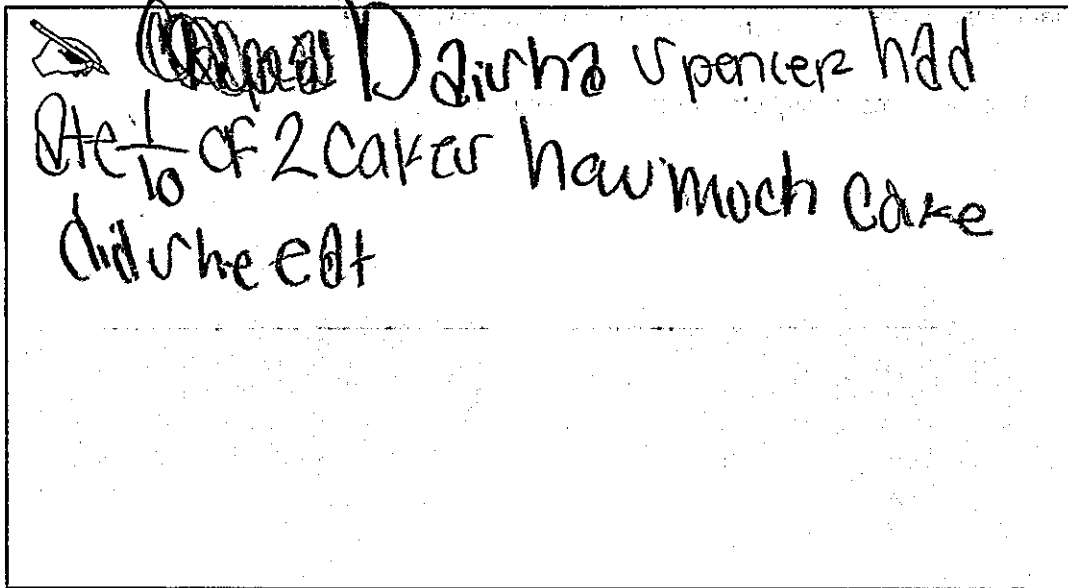 Daisha Spencer had
ate 1/10 of 2 cakes how moch cake
did she eat